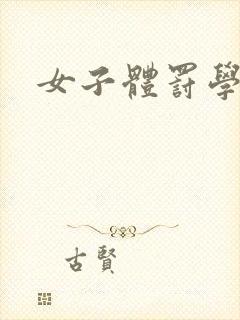 女子體罰學
古賢